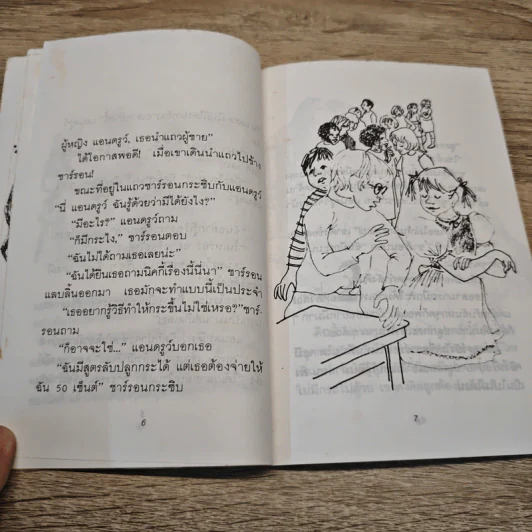 ผู้หญิง แอนดรูว์, เธอนำแถวผู้ชาย”
ได้โอกาสพอดี! เมื่อเขาเดินนำแถวไปข้าง
ชาร์รอน!
ขณะที่อยู่ในแถวชาร์รอนกระซิบกับแอนดรูว์
“นี่ แอนดรูว์ ฉันรู้ด้วยว่ามีได้ยังไง?”
“มีอะไร?” แอนดรูว์ถาม
“ก็มีกระไง,” ชาร์รอนตอบ
“ฉันไม่ได้ถามเธอเลยน่ะ”
“ฉันได้ยินเธอถามนิคกี้เรื่องนี้นี่นา” ชาร์รอน
แลบลิ้นออกมา เธอมักจะทำแบบนี้เป็นประจำ
“เธออยากรู้วิธีทำให้กระขึ้นไม่ใช่เหรอ?” ชาร์-
รอนถาม
“ก็อาจจะใช่...” แอนดรูว์บอกเธอ
“ฉันมีสูตรลับปลูกกระได้ แต่เธอต้องจ่ายให้
ฉัน 50 เซ็นต์” ชาร์รอนกระซิบ
6
7